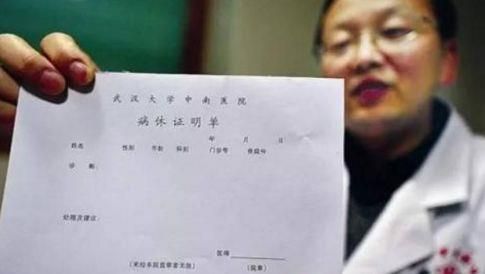 武汉大学中南医院
病休证明单
年 月 日
姓名 性别 年龄 科别 门诊号
诊断：
处理及建议：
医师
（未经本院盖章者无效） （院章）